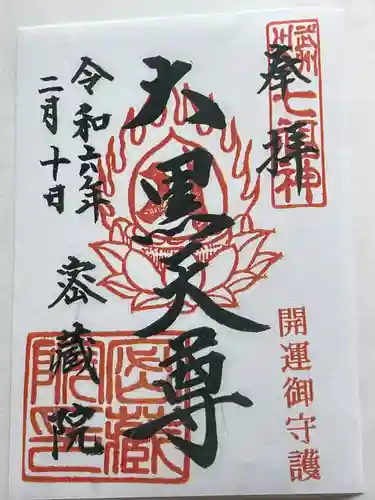 奉拝
武州川口七福神
開運御守護
大黒天尊
令和六年
二月十日
密蔵院
密蔵院印